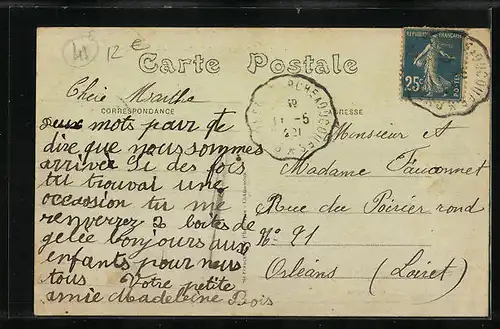 41
12 €
Carte Postale
REPUBLIQUE FRANÇAISE
25c POSTES
CORRESPONDANCE
ADRESSE
19
11 -5
21
Chère Marthe
deux mots pour te
dire que nous sommes
arriver Si des fois
tu trouvai une
occassion tu me
renverrez 2 boites de
gelée bonjours aux
enfants pour nous
tous Votre petite
amie Madeleine Bois
Monsieur et
Madame Fauconnet
Rue du Poirier rond
N° 91
Orléans (Loiret)